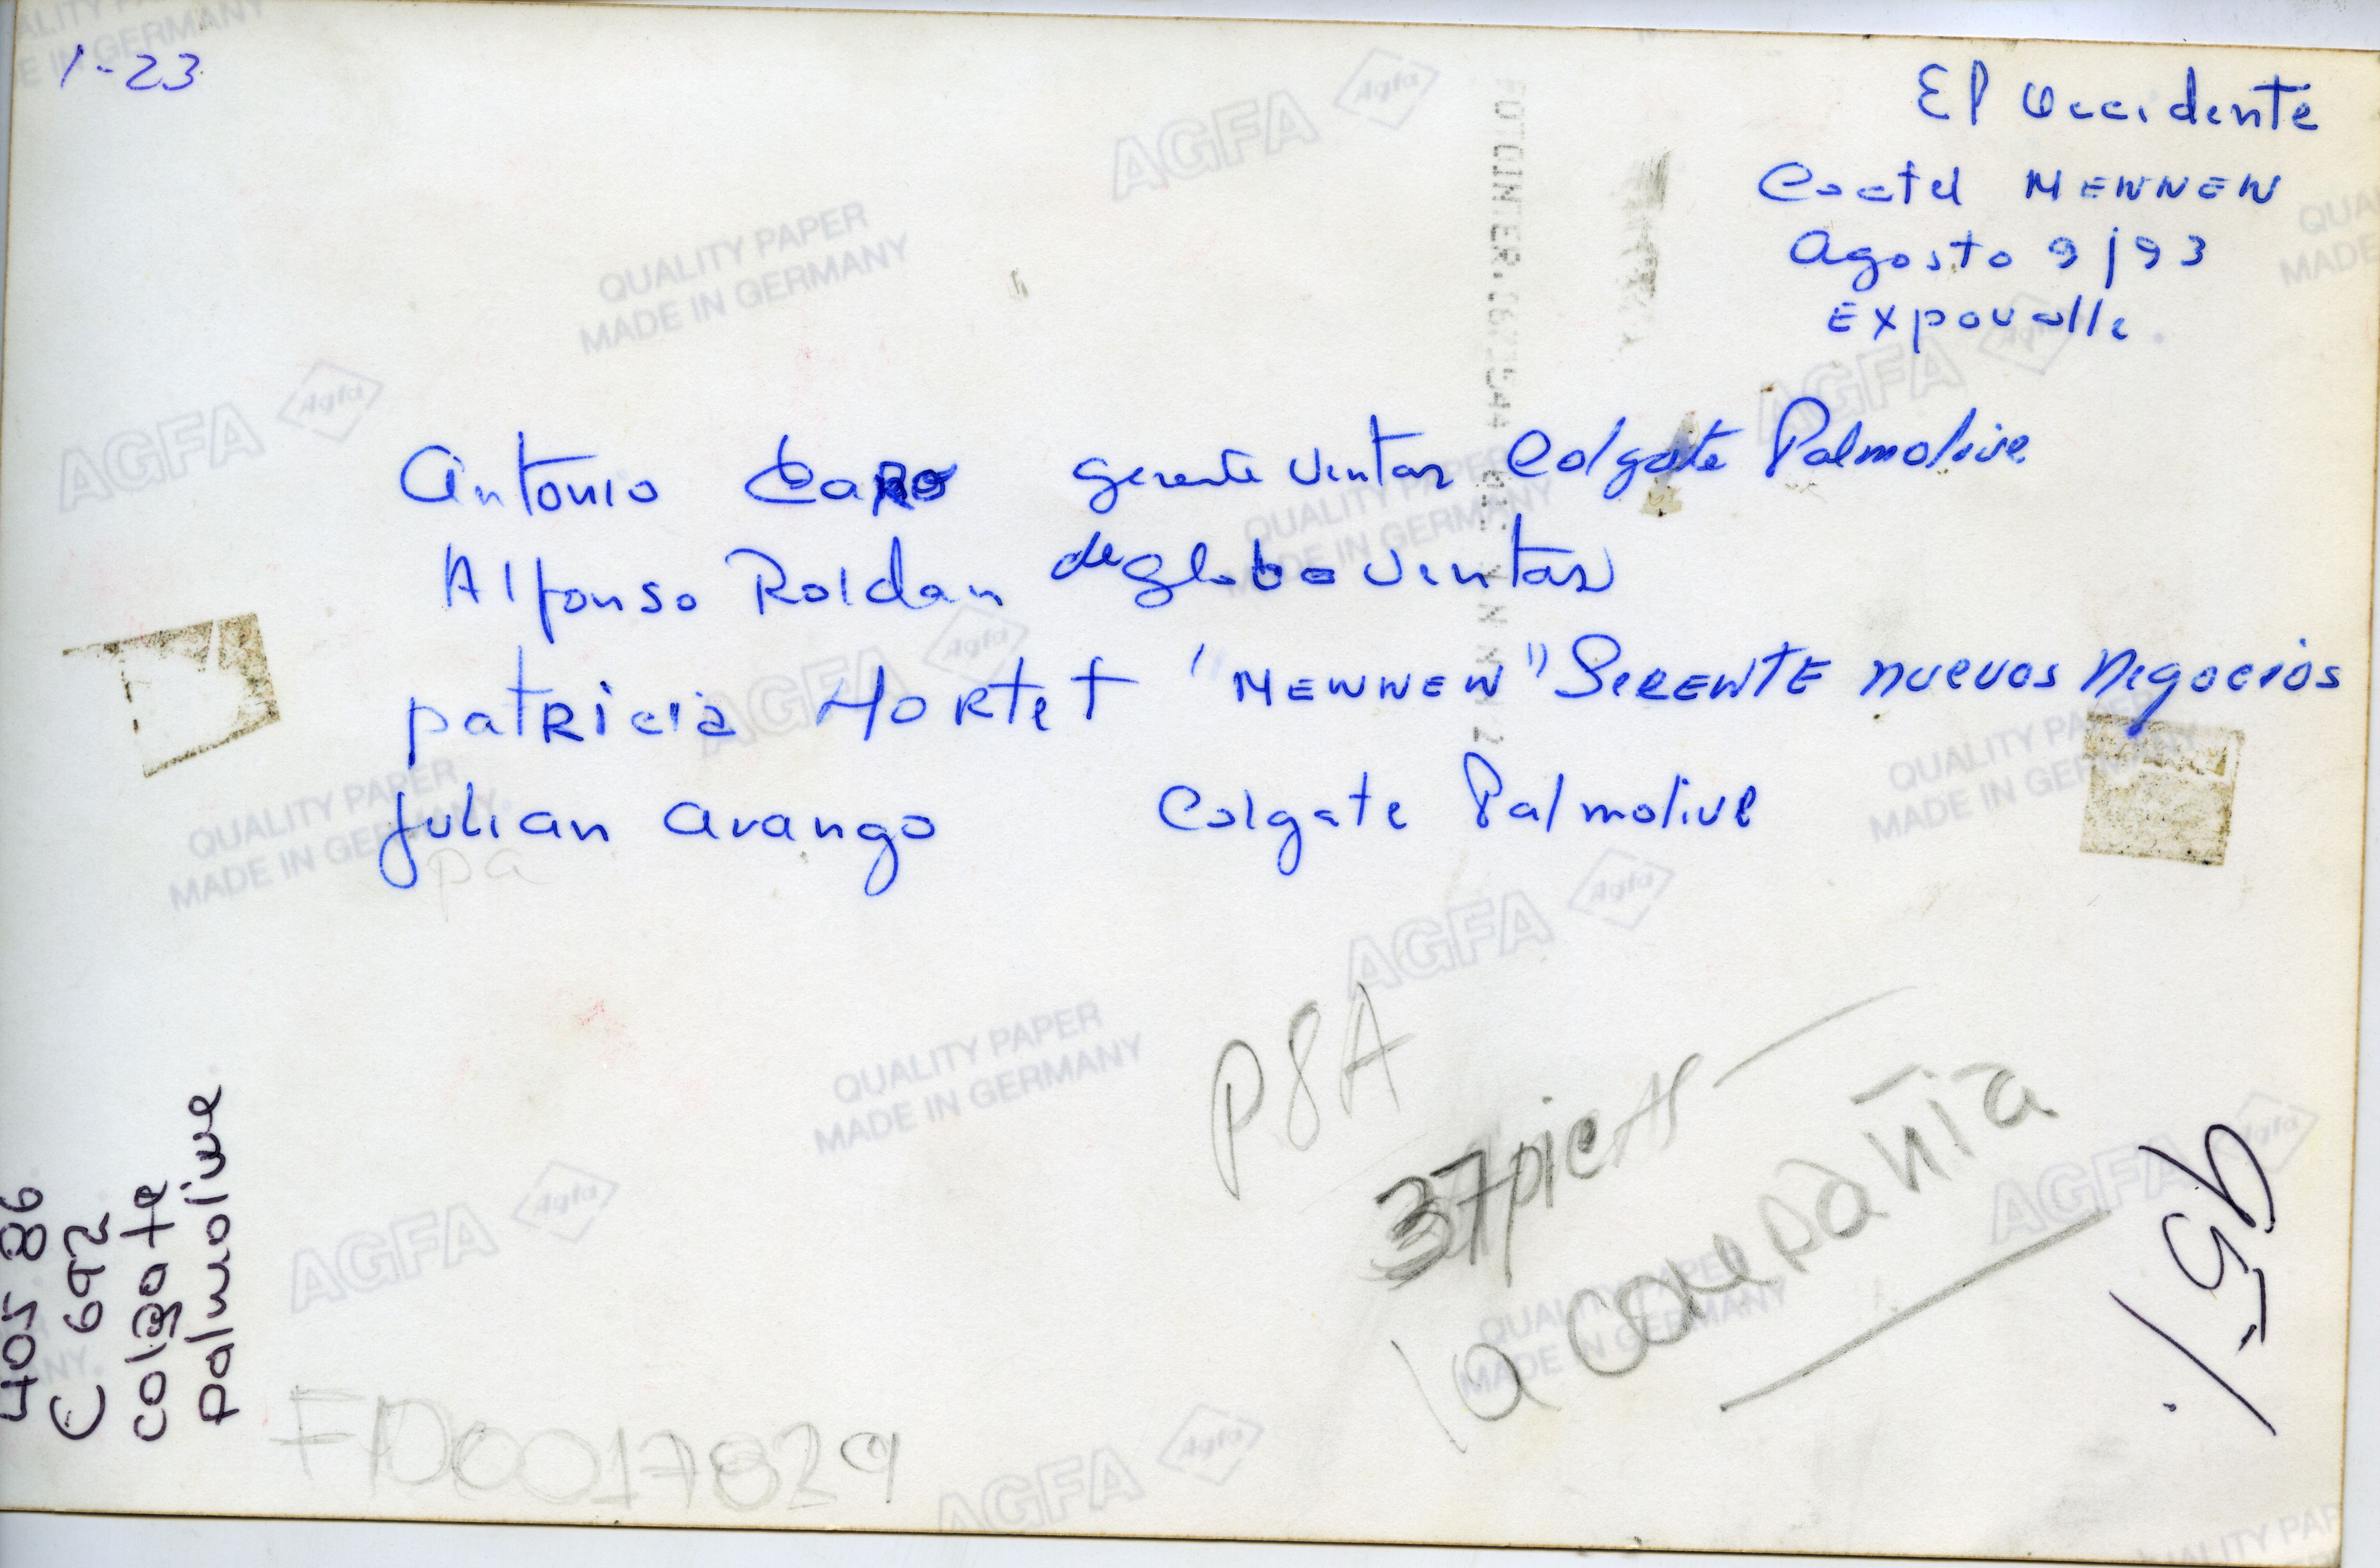 1-23
El Occidente
Coctel MENNEN
Agosto 9/93
Expovalle.
Antonio Caro gerente ventas Colgate Palmolive
Alfonso Roldan de globo ventas
patricia Hortet "MENNEN" GERENTE nuevos negocios
Julian arango Colgate Palmolive
pa
P8A
37 pic
la compañia
405 86
C 692
colgate
palmolive
FD0017829
AGFA Agfa
QUALITY PAPER
MADE IN GERMANY